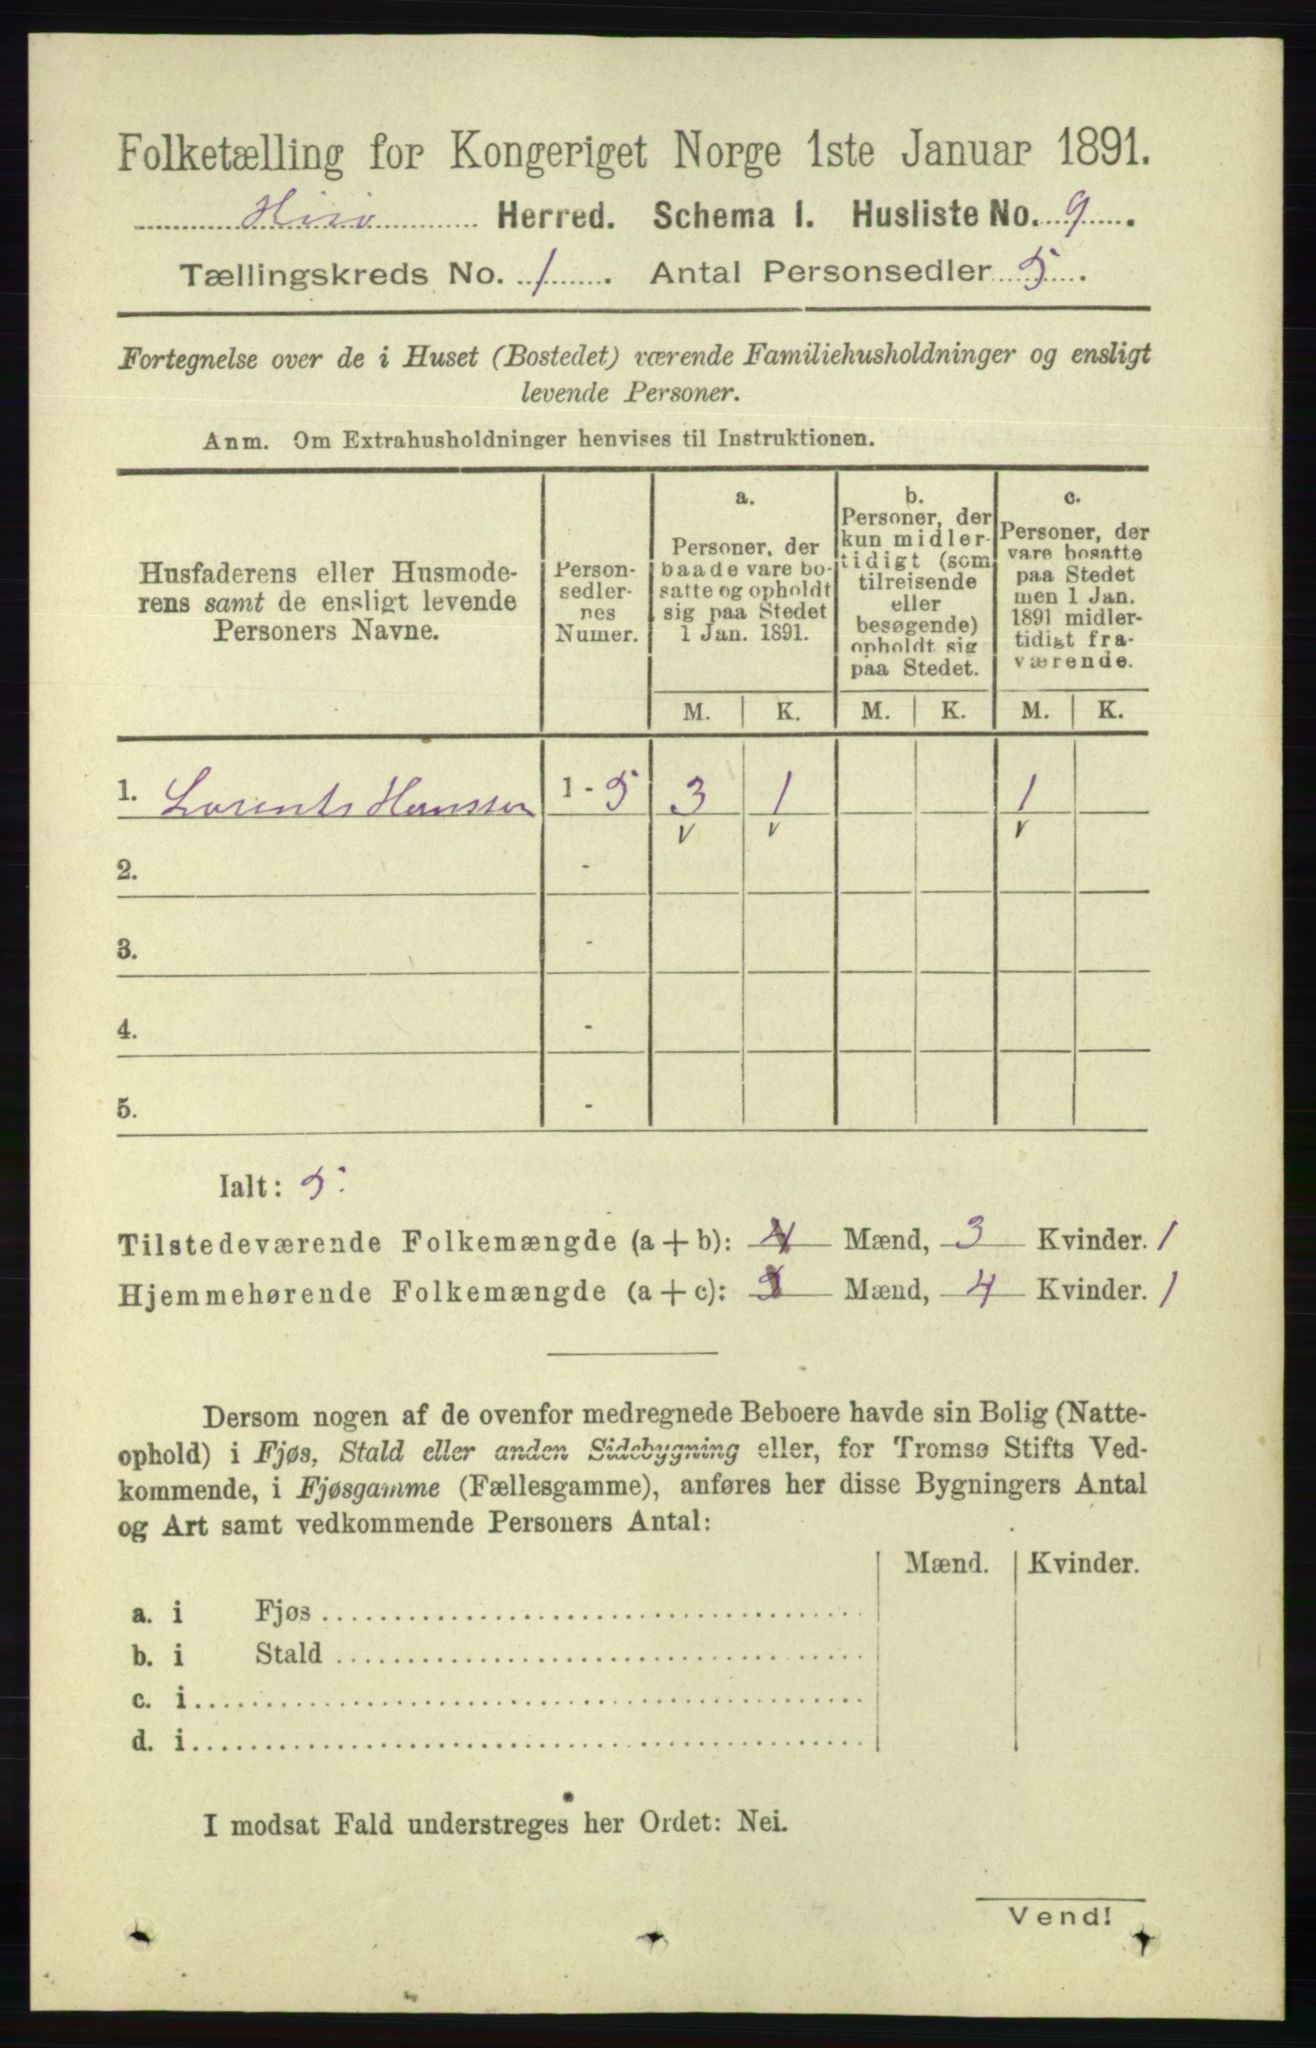 Folketælling for Kongeriget Norge 1ste Januar 1891.
Hisø Herred. Schema I. Husliste No. 9.
Tællingskreds No. 1. Antal Personsedler 5.
Fortegnelse over de i Huset (Bostedet) værende Familiehusholdninger og ensligt
levende Personer.
Anm. Om Extrahusholdninger henvises til Instruktionen.
Husfaderens eller Husmode-
rens samt de ensligt levende
Personers Navne.
Person-
sedler-
nes
Numer.
a.
Personer, der
baade vare bo-
satte og opholdt
sig paa Stedet
1 Jan. 1891.
b.
Personer, der
kun midler-
tidigt (som
tilreisende
eller
besøgende)
opholdt sig
paa Stedet.
c.
Personer, der
vare bosatte
paa Stedet
men 1 Jan.
1891 midler-
tidigt fra-
værende.
M. K. M. K. M. K.
1. Lorents Hanssen 1 - 5 3 1 1
v v v
2. -
3. -
4. -
5. -
Ialt: 5.
Tilstedeværende Folkemængde (a + b): 4 Mænd, 3 Kvinder. 1
Hjemmehørende Folkemængde (a + c): 5 Mænd, 4 Kvinder. 1
Dersom nogen af de ovenfor medregnede Beboere havde sin Bolig (Natte-
ophold) i Fjøs, Stald eller anden Sidebygning eller, for Tromsø Stifts Ved-
kommende, i Fjøsgamme (Fællesgamme), anføres her disse Bygningers Antal
og Art samt vedkommende Personers Antal:
Mænd. Kvinder.
a. i Fjøs
b. i Stald
c. i
d. i
I modsat Fald understreges her Ordet: Nei.
Vend!